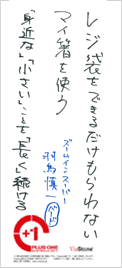 レジ袋をできるだけもらわない
マイ箸を使う
「身近な」「小さい」ことを「長く」続ける
ズームインスーパー
羽鳥慎一
+1
PLUS ONE